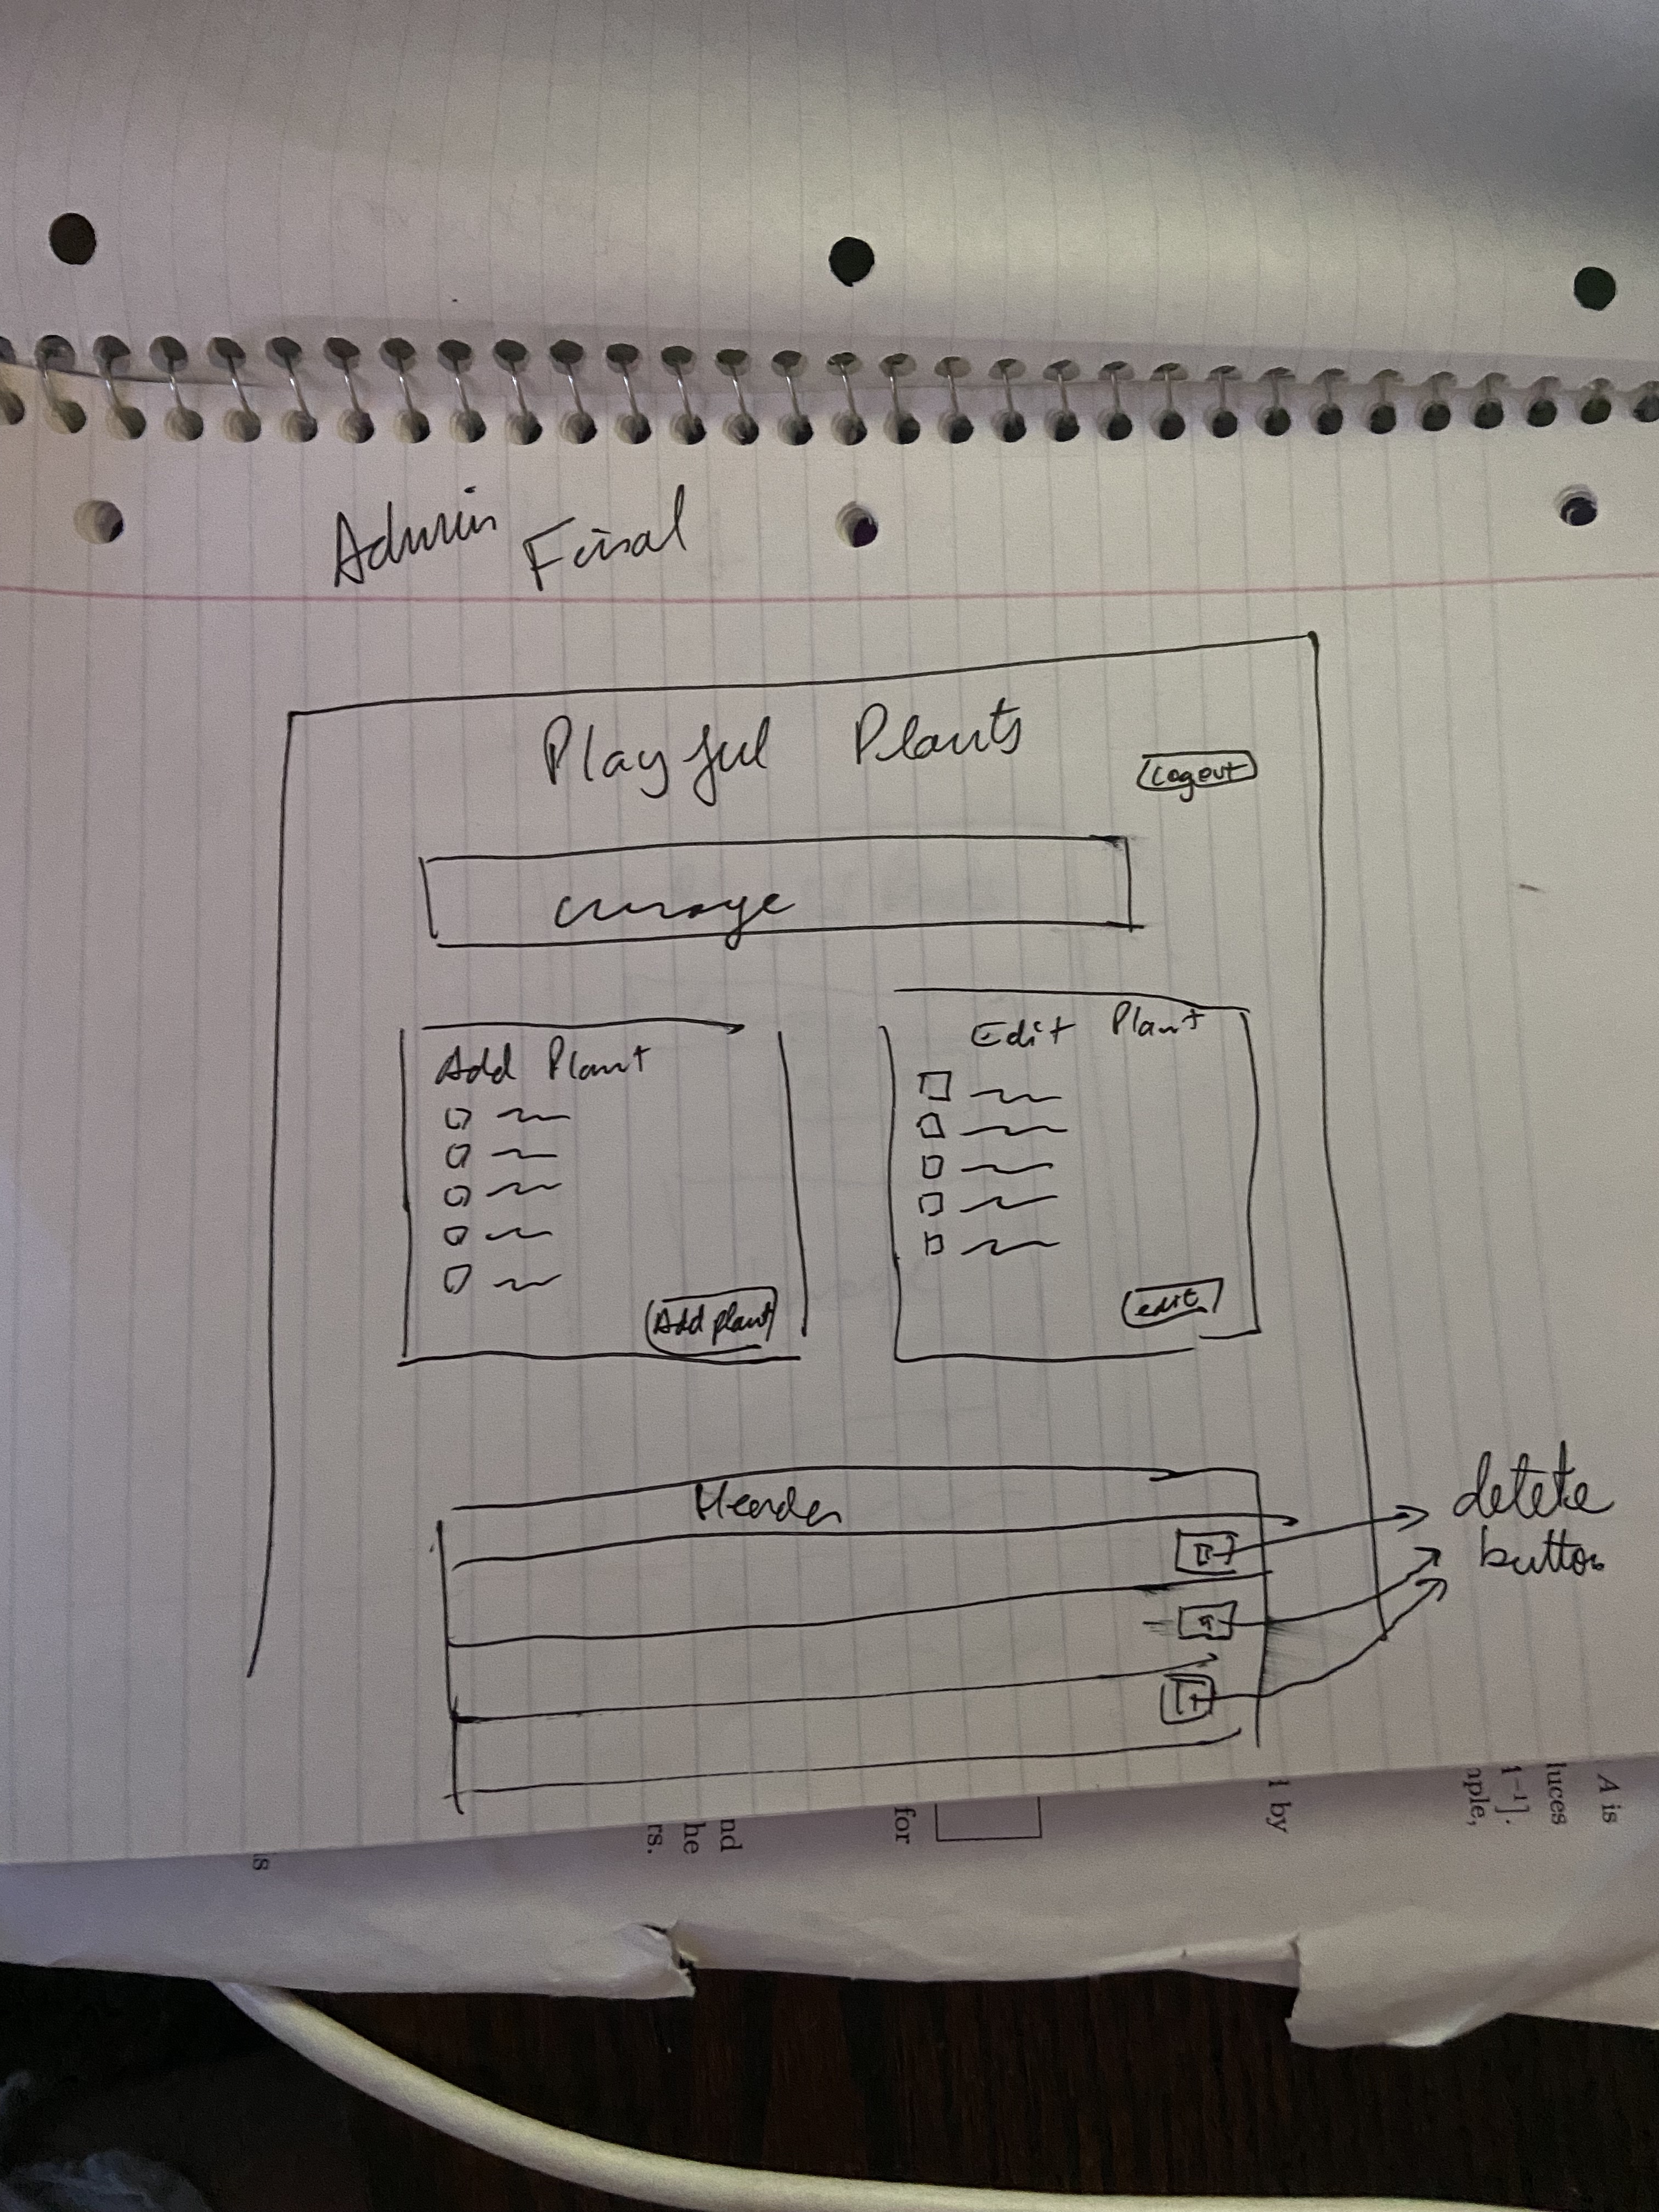 Admin Final
Playful Plants
Logout
Add Plant
Add plant
Edit Plant
edit
Header
delete
button
A is
luces
nple,
l by
for
nd
he
rs.
is